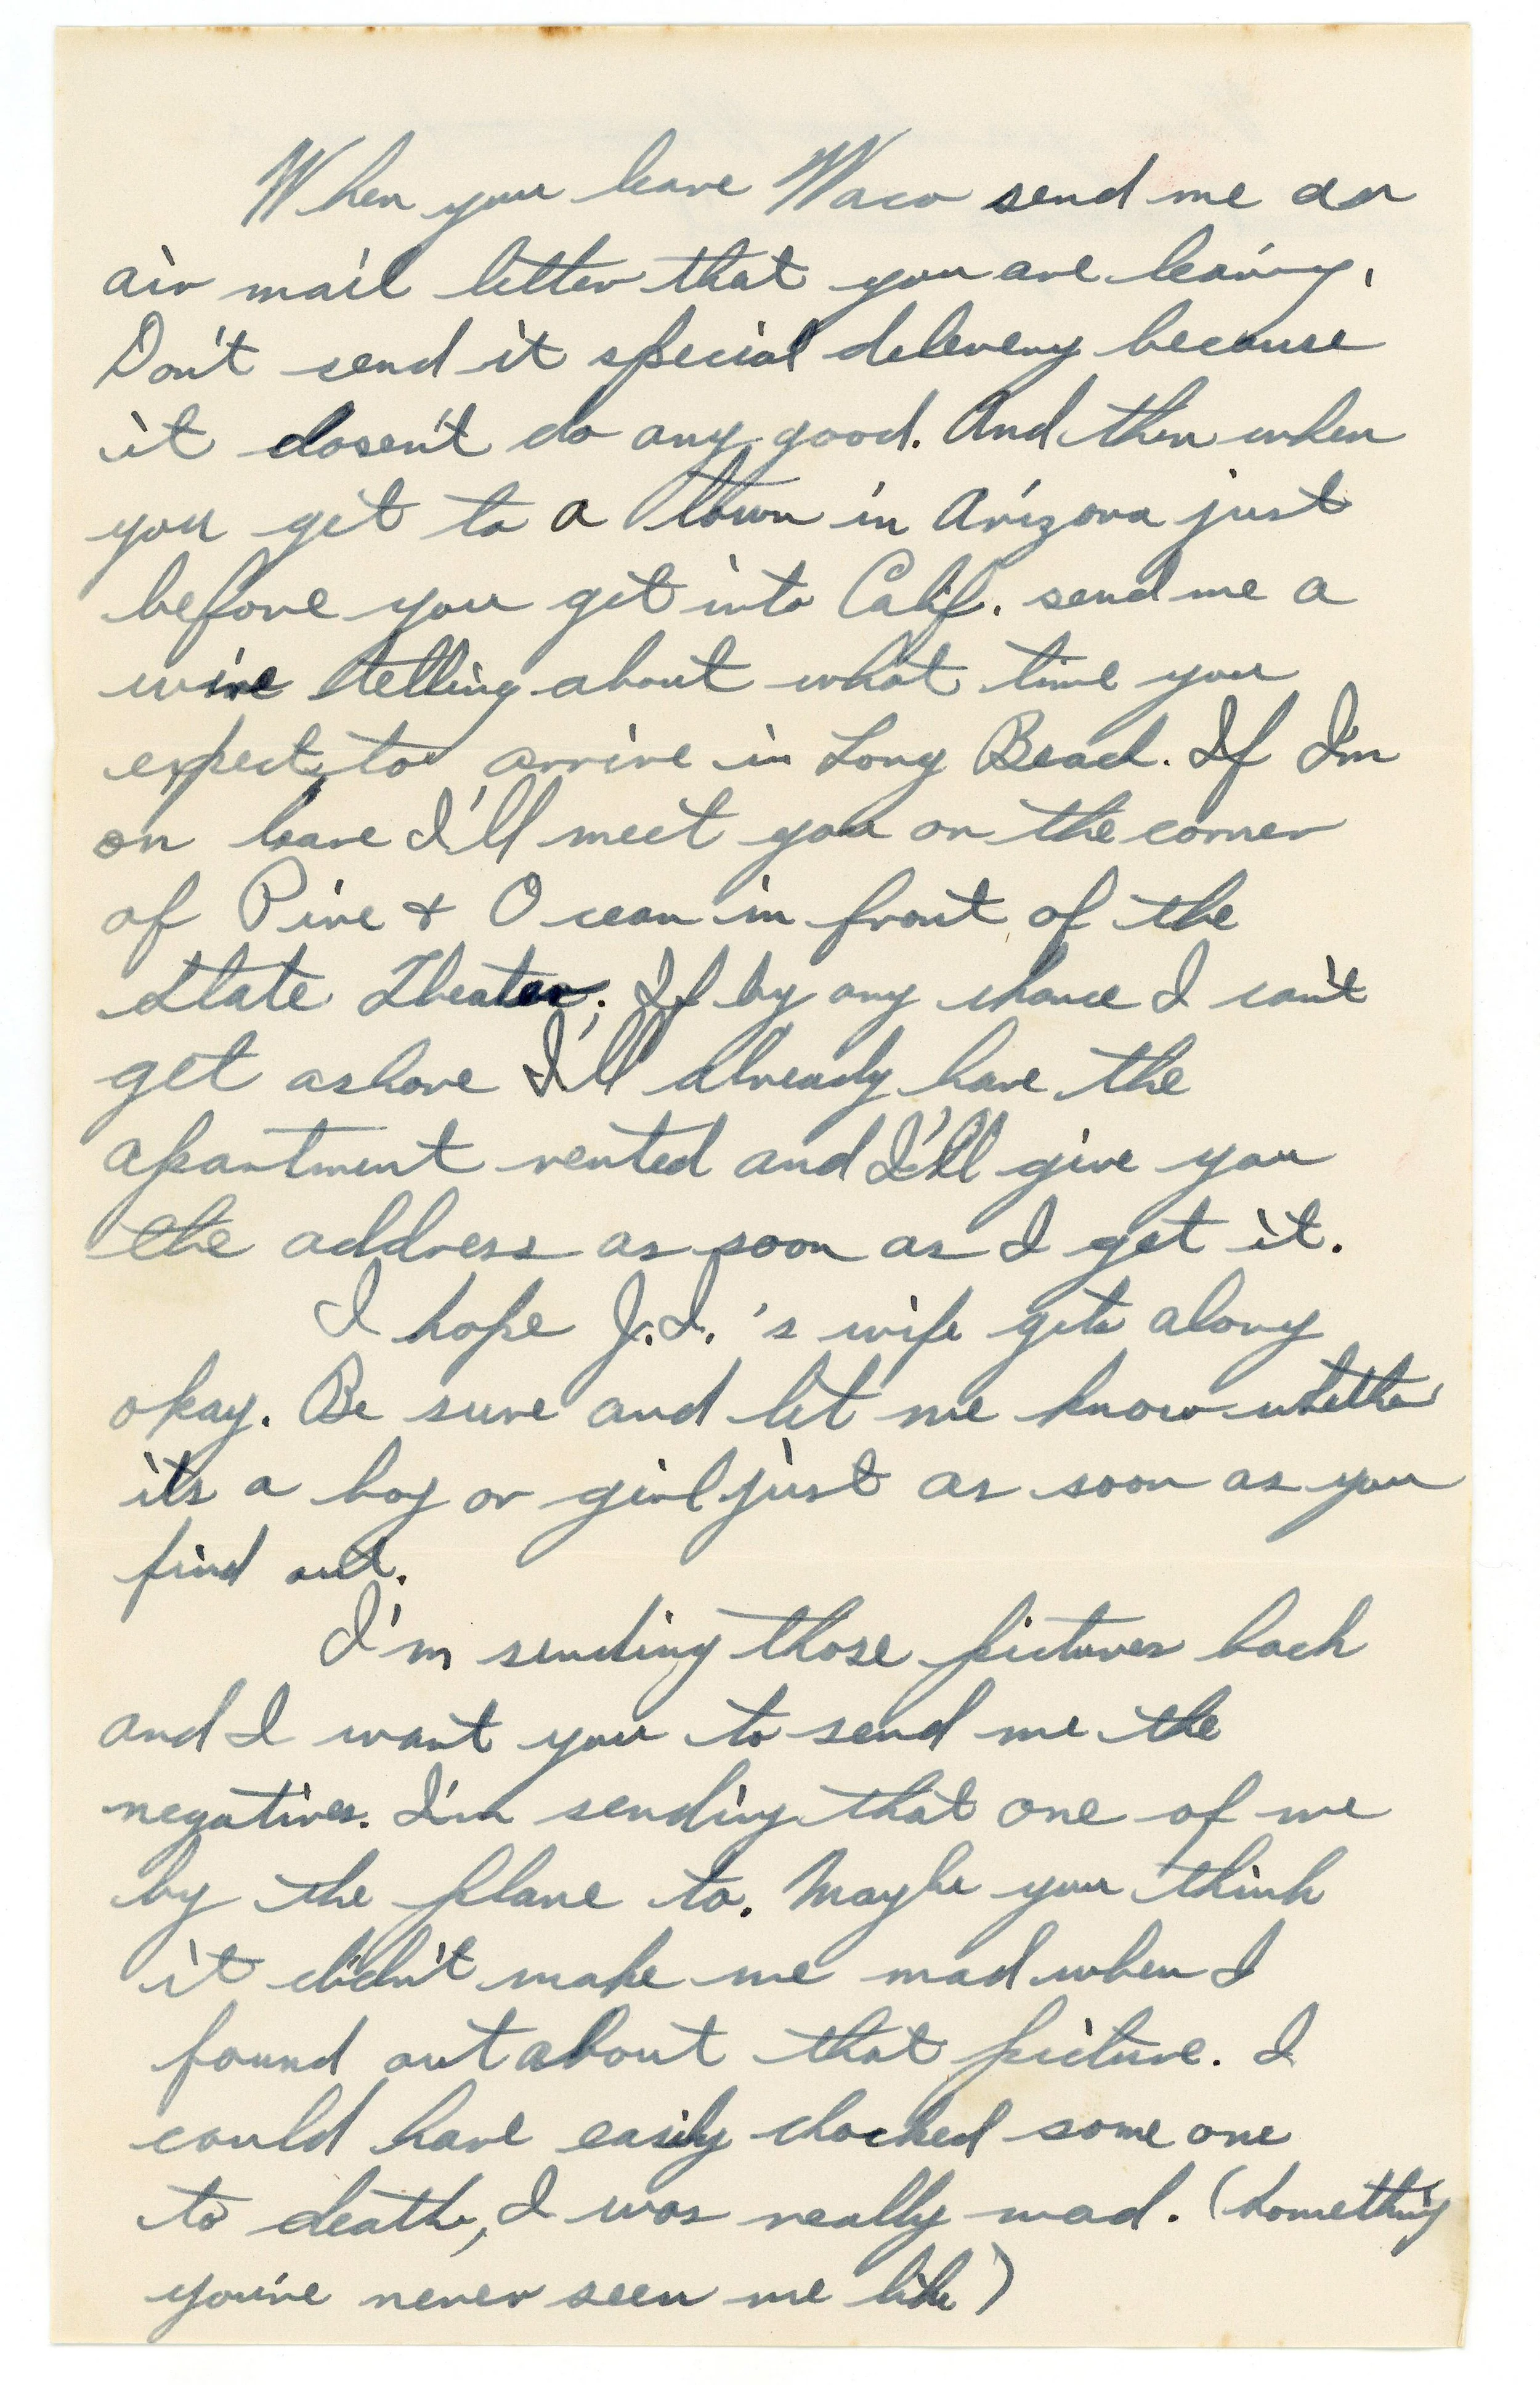 When you leave Waco send me an
air mail letter that you are leaving.
Don't send it special delevery because
it dosen't do any good. And then when
you get to a town in Arizona just
before you get into Calif. send me a
wire telling about what time you
expect to arrive in Long Beach. If I'm
on leave I'll meet you on the corner
of Pine & Ocean in front of the
State Theater; If by any chance I can't
get ashore I'll already have the
apartment rented and I'll give you
the address as soon as I get it.
I hope J.I.'s wife gets along
okay. Be sure and let me know whether
its a boy or girl just as soon as you
find out.
I'm sending those pictures back
and I want you to send me the
negatives. I'm sending that one of me
by the plane to. Maybe you think
it didn't make me mad when I
found out about that picture. I
could have easily chocked some one
to death, I was really mad. (Something
you've never seen me like)